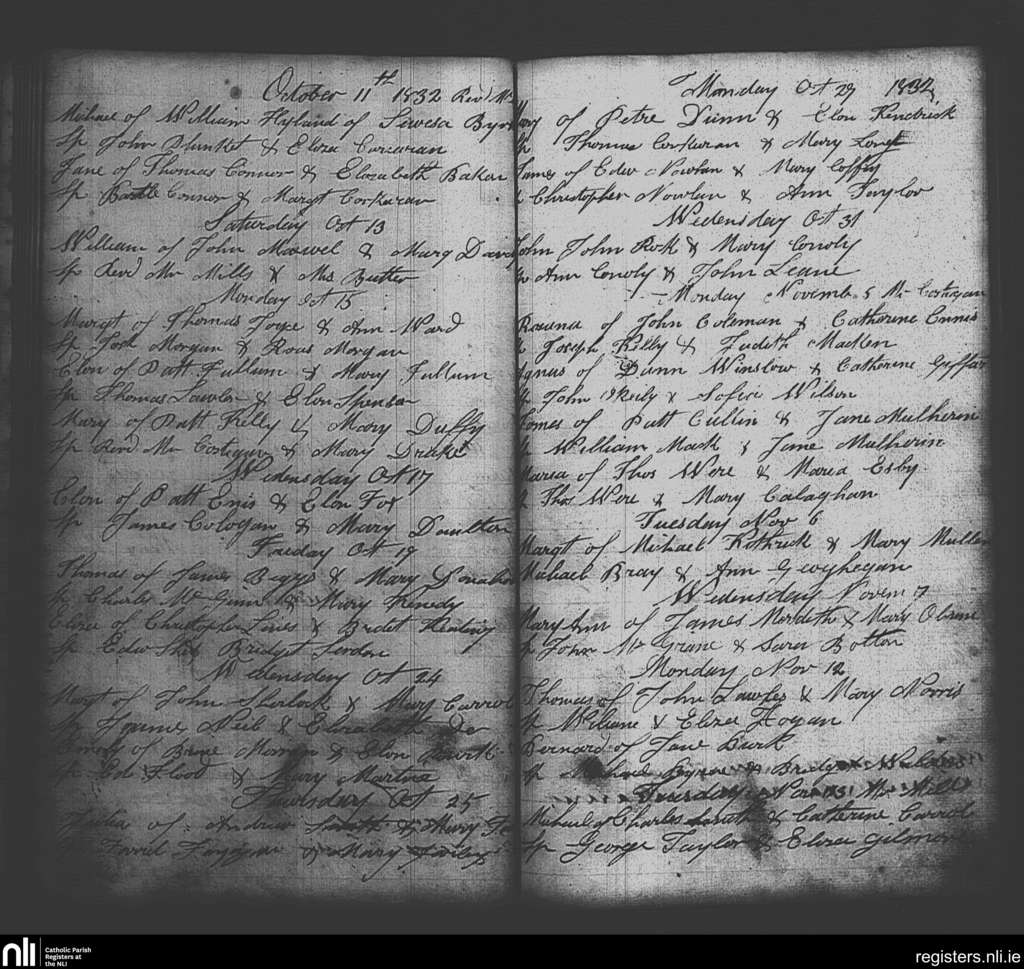 October 11th 1832 Revd Mr
Michael of William Hyland of Byrn
Sp John Plunket & Eliza Corcoran
Jane of Thomas Connor & Elozabeth Baken
Sp Bartle Connor & Margt Corkuran
Saturday Oct 13
William of John Maxwel & Mary
Sp Revd Mr Mills & Mrs Butler
Monday Oct 15
Margt of Thomas Joyce & Ann Ward
Sp Morgan & Rose Morgan
Elon of Patt Fullum & Mary Fullum
Sp Thomas Lawlor & Elon Spensor
Mary of Patt Kelly & Mary Duffy
Sp Revd Mr Costigan & Mary Drake
Wedensday Oct 17
Elon of Patt Enis & Elon Fox
Sp James Cologan & Mary
Friday Oct 19
Thomas of James Beggs & Mary
Sp Charles Mc Ginn & Mary Kenedy
Eliza of Christopher & Bridet Keating
Sp Edwd Bridget
Wedensday Oct 24
Margt of John Sherlock & Mary Carrol
Sp Neil & Elizabeth
of & Elon
Sp Ed Flood & Mary Martina
Thursday Oct 25
of Andrew Smith & Mary
& Mary
Monday Oct 29 1832
Mary of Petre Dunn & Elon Kendrick
Sp Thomas Corkuran & Mary
James of Edwd Nowlan & Mary Coffey
Christopher Nowlan & Ann Taylor
Wedensday Oct 31
John John Rock & Mary Conoly
Sp Ann Conoly & John Leane
Monday Novemb 5 Mr Costigan
Rosanna of John Coleman & Catherine Ennis
Sp Joseph Kelly & Judeth Macken
Agnus of Dunn Winslow & Catherine
Sp John & Wilson
James of Patt Cullin & Jane Mulherin
Sp William Mack & Jane Mulherin
Maria of Thos Were & Maria Esby
Sp Thos Were & Mary Calaghan
Tuesday Nov 6
Margt of Michael & Mary Mullen
Michael Bray & Ann Geoghegan
Wedensday Novem 7
Mary Ann of James Meredith & Mary
Sp John Mc Grane & Sara Botton
Monday Nov 12
Thomas of John Lawles & Mary Norris
Sp Williane & Eliza Hogan
Bernard of Jane Burk
Sp Michael Byrne & Bridget
Tuesday Nov 13 Mr Mills
Michael of Charles Smith & Catherine Carrol
Sp George Taylor & Eliza Gilmore
nli
Catholic Parish
Registers at
the NLI
registers.nli.ie